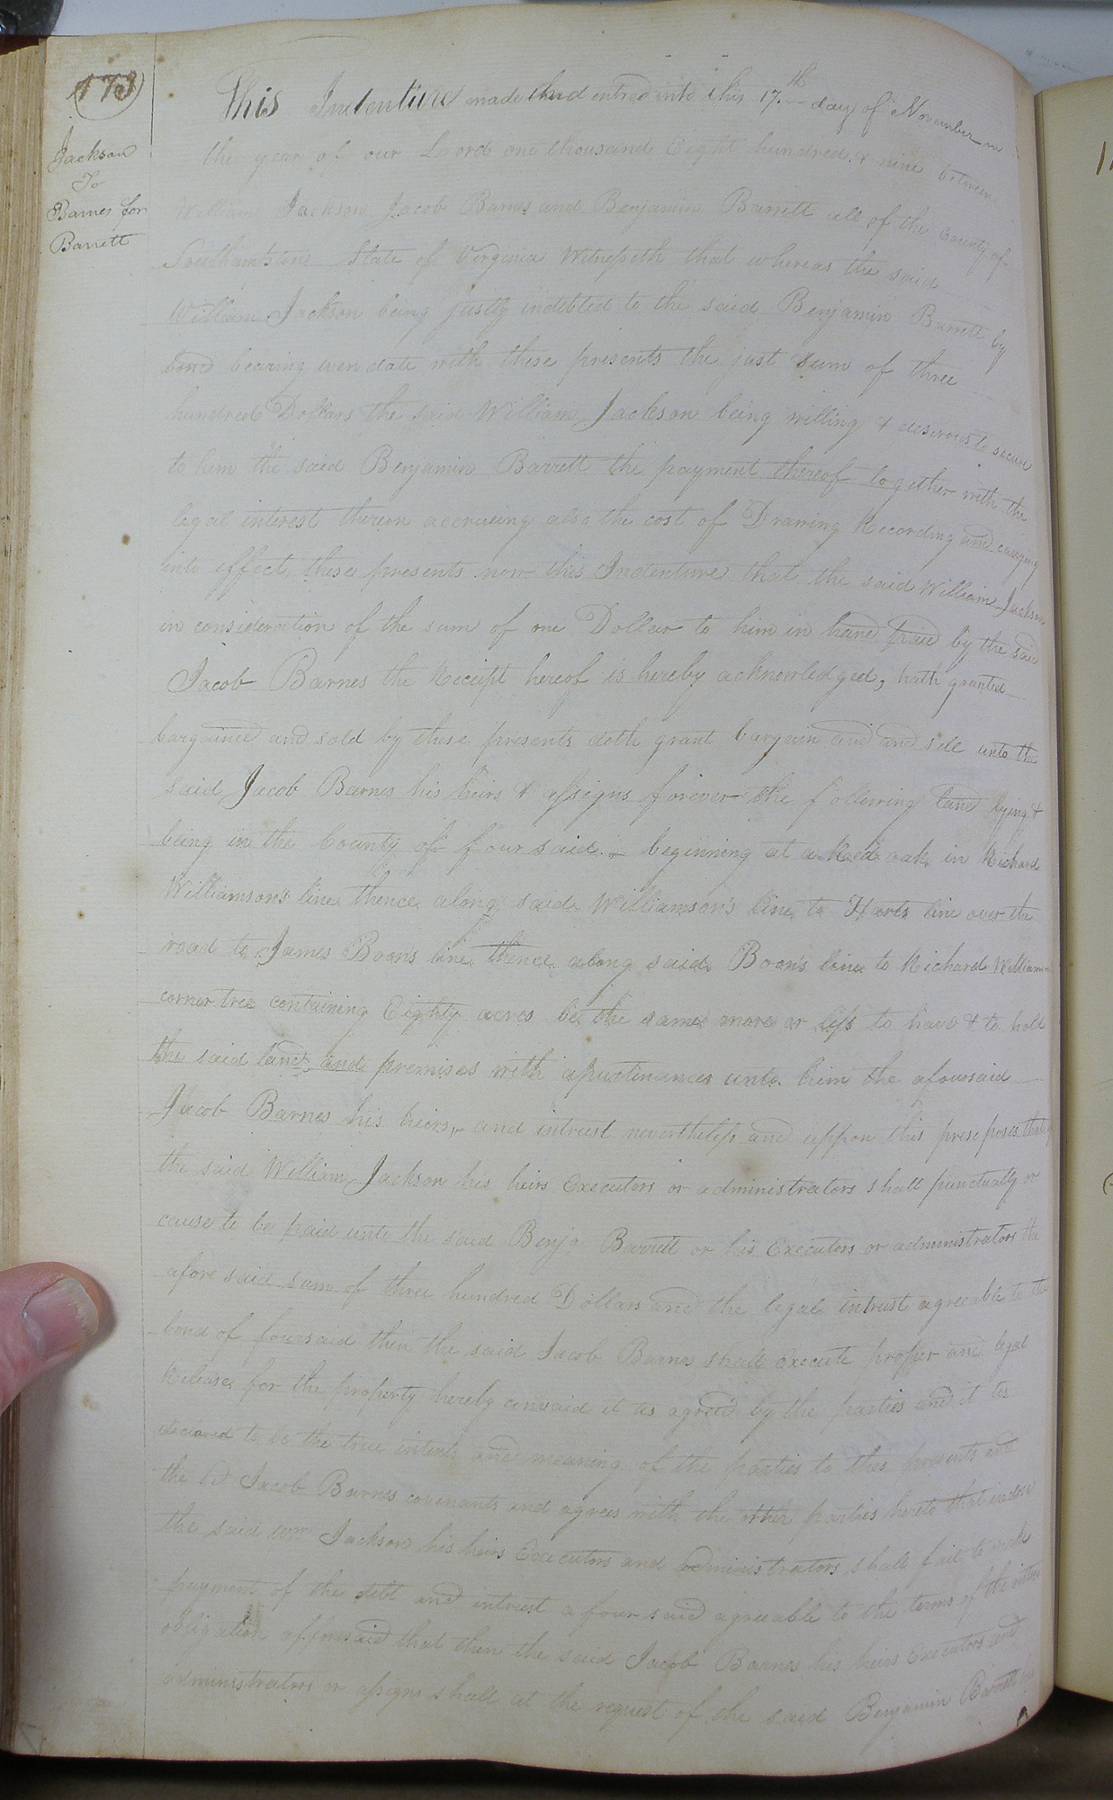 173
Jackson
To
Barnes for
Barrett
This Indenture made and entred into this 17th day of November in
the year of our Lord one thousand Eight hundred & nine between
William Jackson Jacob Barnes and Benjamin Barrett all of the County of
Southampton State of Virginia Witnesseth that whereas the said
William Jackson being justly indebted to the said Benjamin Barrett by
bond bearing even date with these presents the just sum of three
hundred Dollars the said William Jackson being willing & desirous to secure
to him the said Benjamin Barrett the payment thereof together with the
legal interest thereon accrueing also the cost of Drawing Recording and carrying
into effect these presents now this Indenture that the said William Jackson
in consideration of the sum of one Dollar to him in hand paid by the said
Jacob Barnes the Receipt hereof is hereby acknowledged, hath granted
bargained and sold by these presents doth grant bargain and and sell unto the
said Jacob Barnes his heirs & assigns forever the following land lying &
being in the County of foursaid beginning at a Red oak in Richard
Williamson's line thence along said Williamson's line to Harts line over the
road to James Boon's line thence along said Boon's line to Richard Williamson
corner tree containing Eighty acres be the same more or less to have & to hold
the said land and premises with apurtinances unto him the afoursaid
Jacob Barnes his heirs, and intrust nevertheless and uppon this
the said William Jackson his heirs Executors or administrators shall punctually or
cause to be paid unto the said Benja Barrett or his Executors or administrators the
afore said sum of three hundred Dollars and the legal intrust agreeable to the
bond of foursaid then the said Jacob Barnes shall Execute proper and legal
Release for the property hereby convaid it is agreed by the parties and it is
declared to be the true intent and meaning of the parties to thes presents and
the sd Jacob Barnes covenants and agrees with the other parties hereto that incase
the said Wm Jackson his heirs Executors and administrators shall fail to make
payment of the debt and intrest afoursaid agreeable to the terms of the
obligation afforesaid that then the said Jacob Barnes his heirs Executors and
administrators or assigns shall at the request of the said Benjamin Barrett his